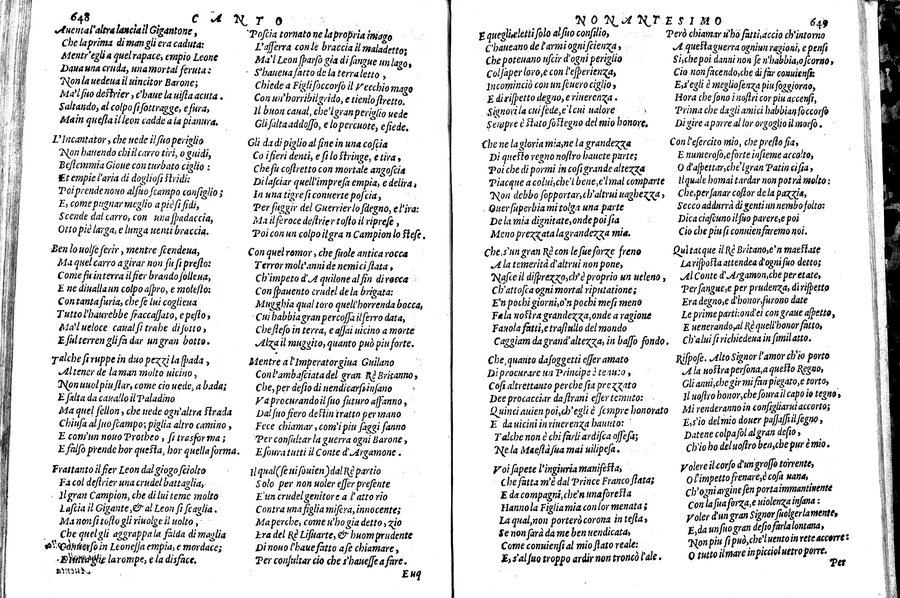 648 CANTO
Auenta l'altra lancia il Gigantone,
Che la prima di man gli era caduta:
Mentr'egli a quel rapace, empio Leone
Daua una cruda, una mortal feruta:
Non la uedeua il uincitor Barone;
Ma'l suo destrier, c'haue la uista acuta.
Saltando, al colpo si sottragge, e fura,
Main questa il leon cadde a la pianura.
L'Incantator, che uede il suo periglio
Non hauendo chi il carro tiri, o guidi,
Bestemmia Gioue con turbato ciglio:
Et empie l'aria di dogliosi stridi:
Poi prende nouo al suo scampo consiglio;
E, come pugnar meglio a piè si fidi,
Scende dal carro, con una spadaccia,
Otto piè larga, e lunga uenti braccia.
Ben lo uolse ferir, mentre scendeua,
Ma quel carro a girar non fu sì presto:
Come fu intera il fier brando solleua,
E ne diualla un colpo aspro, e molesto:
Con tanta furia, che se lui coglieua
Tutto l'haurebbe fracassato, e pesto,
Ma'l ueloce caual si trahe di sotto,
E su'l terren gli fa dar un gran botto.
Talche si ruppe in duo pezzi la spada,
Al tener de la man molto uicino,
Non uuol piu star, come cio uede, a bada;
E salta da cauallo il Paladino
Ma quel fellon, che uede ogn'altra strada
Chiusa al suo scampo; piglia altro camino,
E com'un nouo Protheo, si trasforma;
E falso prende hor questa, hor quella forma.
Frattanto il fier Leon dal giogo sciolto
Fa col destrier una crudel battaglia,
Il gran Campion, che di lui teme molto
Lascia il Gigante, & al Leon si scaglia.
Ma non sì tosto gli riuolge il uolto,
Che quel gli aggrappa la falda di maglia
Conuerso in Leonessa empia, e mordace;
E in taglie la rompe, e la disface.
Poscia tornato ne la propria imago
L'afferra con le braccia il maladetto;
Ma'l Leon sparso gia di sangue un lago,
S'haueua fatto de la terra letto,
Chiede a Figli soccorso il Vecchio mago
Con un'horribil grido, e tienlo stretto.
Il buon caual, che'l gran periglio uede
Gli salta addosso, e lo percuote, e fiede.
Gli da di piglio al fine in una coscia
Co i fieri denti, e sì lo stringe, e tira,
Che fu costretto con mortale angoscia
Di lasciar quell'impresa empia, e delira,
In una tigre si conuerte poscia,
Per fuggir del Guerrier lo sdegno, e l'ira:
Ma il feroce destrier tosto il riprese,
Poi con un colpo il gran Campion lo stese.
Con quel romor, che suole antica rocca
Terror molt'anni de nemici stata,
Ch'impeto d'Aquilone al fin dirocca
Con spauento crudel de la brigata:
Mugghia qual toro quell'horrenda bocca,
Cui habbia gran percossa il ferro data,
Che steso in terra, e assai uicino a morte
Alza il muggito, quanto può piu forte.
Mentre a l'Imperator giua Guilano
Con l'ambasciata del gran Rè Britanno,
Che, per desio di uendicarsi insano
Va procurando il suo futuro affanno,
Dal suo fiero destin tratto per mano
Fece chiamar, com'i piu saggi fanno
Per consultar la guerra ogni Barone,
E soura tutti il Conte d'Argamone.
Il qual (se ui souien) dal Rè partio
Solo per non uoler esser presente
E'un crudel genitore a l'atto rio
Contra una figlia misera, innocente;
Ma perche, come u'ho gia detto, zio
Era del Rè Lisuarte, & huom prudente
Di nouo l'haue fatto a se chiamare,
Per consultar cio che s'hauesse a fare.
Euq
NONANTESIMO 649
E quegli eletti solo al suo consilio,
C'haueano de l'armi ogni scienza,
Che poteuano uscir d'ogni periglio
Col saper loro, e con l'esperienza,
Incominciò con un seuero ciglio,
E di rispetto degno, e riuerenza.
Signori la cui fede, e'l cui ualore
Sempre è stato sostegno del mio honore.
Che ne la gloria mia, ne la grandezza
Di questo regno nostro hauete parte;
Poi che di pormi in così grande altezza
Piacque a colui, che'l bene, e'l mal comparte
Non debbo sopportar, ch'altrui uaghezza,
O uer superbia mi tolga una parte
De la mia dignitate, onde poi sia
Meno prezzata la grandezza mia.
Che, s'un gran Rè con le sue forze freno
A la temerità d'altrui non pone,
Nasce il disprezzo, ch'è proprio un ueleno,
Ch'attosca ogni mortal riputatione;
E'n pochi giorni, e'n pochi mesi meno
Fa la nostra grandezza, onde a ragione
Fauola fatti, e trastullo del mondo
Caggiam da grand'altezza, in basso fondo.
Che, quanto da soggetti esser amato
Di procurare un Principe è tenuto,
Così altrettanto perche sia prezzato
Dee procacciar da strani esser temuto:
Quinci auien poi, ch'egli è sempre honorato
E da uicini in riuerenza hauuto:
Talche non è chi farli ardisca offesa;
Ne la Maestà sua mai uilipesa.
Voi sapete l'ingiuria manifesta,
Che fatta m'è dal Prence Franco stata;
E da compagni, che'n una foresta
Hanno la Figlia mia con lor menata;
La qual, non porterò corona in testa,
Se non sarà da me ben uendicata,
Come conuiensi al mio stato reale:
E, s'al suo troppo ardir non troncò l'ale.
Però chiamar u'hò fatti, acciò ch'intorno
A questa guerra ogniun ragioni, e pensi
Sì, che poi danni non se n'habbia, o scorno,
Cio non facendo, che di far conuiensi:
E, s'egli è meglio senza piu soggiorno,
Hora che sono i nostri cor piu accensi,
Prima che da gli amici habbian soccorso
Di gire a porre al lor orgoglio il morso.
Con l'esercito mio, che presto sia,
E numeroso, e forte insieme accolto,
O d'aspettar, che'l gran Patin ci sia,
Il quale homai tardar non potrà molto:
Che, per sanar costor de la pazzia,
Secco addurrà di genti un nembo folto:
Dica ciascuno il suo parere, e poi
Cio che piu si conuien faremo noi.
Quì tacque il Rè Britano, e'n maestate
La risposta attendea d'ogni suo detto;
Al Conte d'Argamon, che per etate,
Per sangue, e per prudenza, di rispetto
Era degno, e d'honor, furono date
Le prime parti: ond'ei con graue aspetto,
E uenerando, al Rè quell'honor fatto,
Ch'a lui si richiedena in simil atto.
Rispose. Alto Signor l'amor ch'io porto
A la uostra persona, a questo Regno,
Gli anni, che gir mi fan piegato, e torto,
Il uostro honor, che soura il capo io tegno,
Mi renderanno in consigliarui accorto;
E, s'io del mio douer passassi il segno,
Datene colpa sol al gran desio,
Ch'io ho del uostro ben, che pur è mio.
Volere il corso d'un grosso torrente,
O l'impetto frenare, è cosa uana,
Ch'ogni argine sen porta immantinente
Con la sua forza, e uiolenza insana:
Voler d'un gran Signor suolger la mente,
E, da un suo gran desio farla lontana,
Non piu si può, che'l uento in rete accorre:
O tutto il mare in picciol uetro porre.
Per